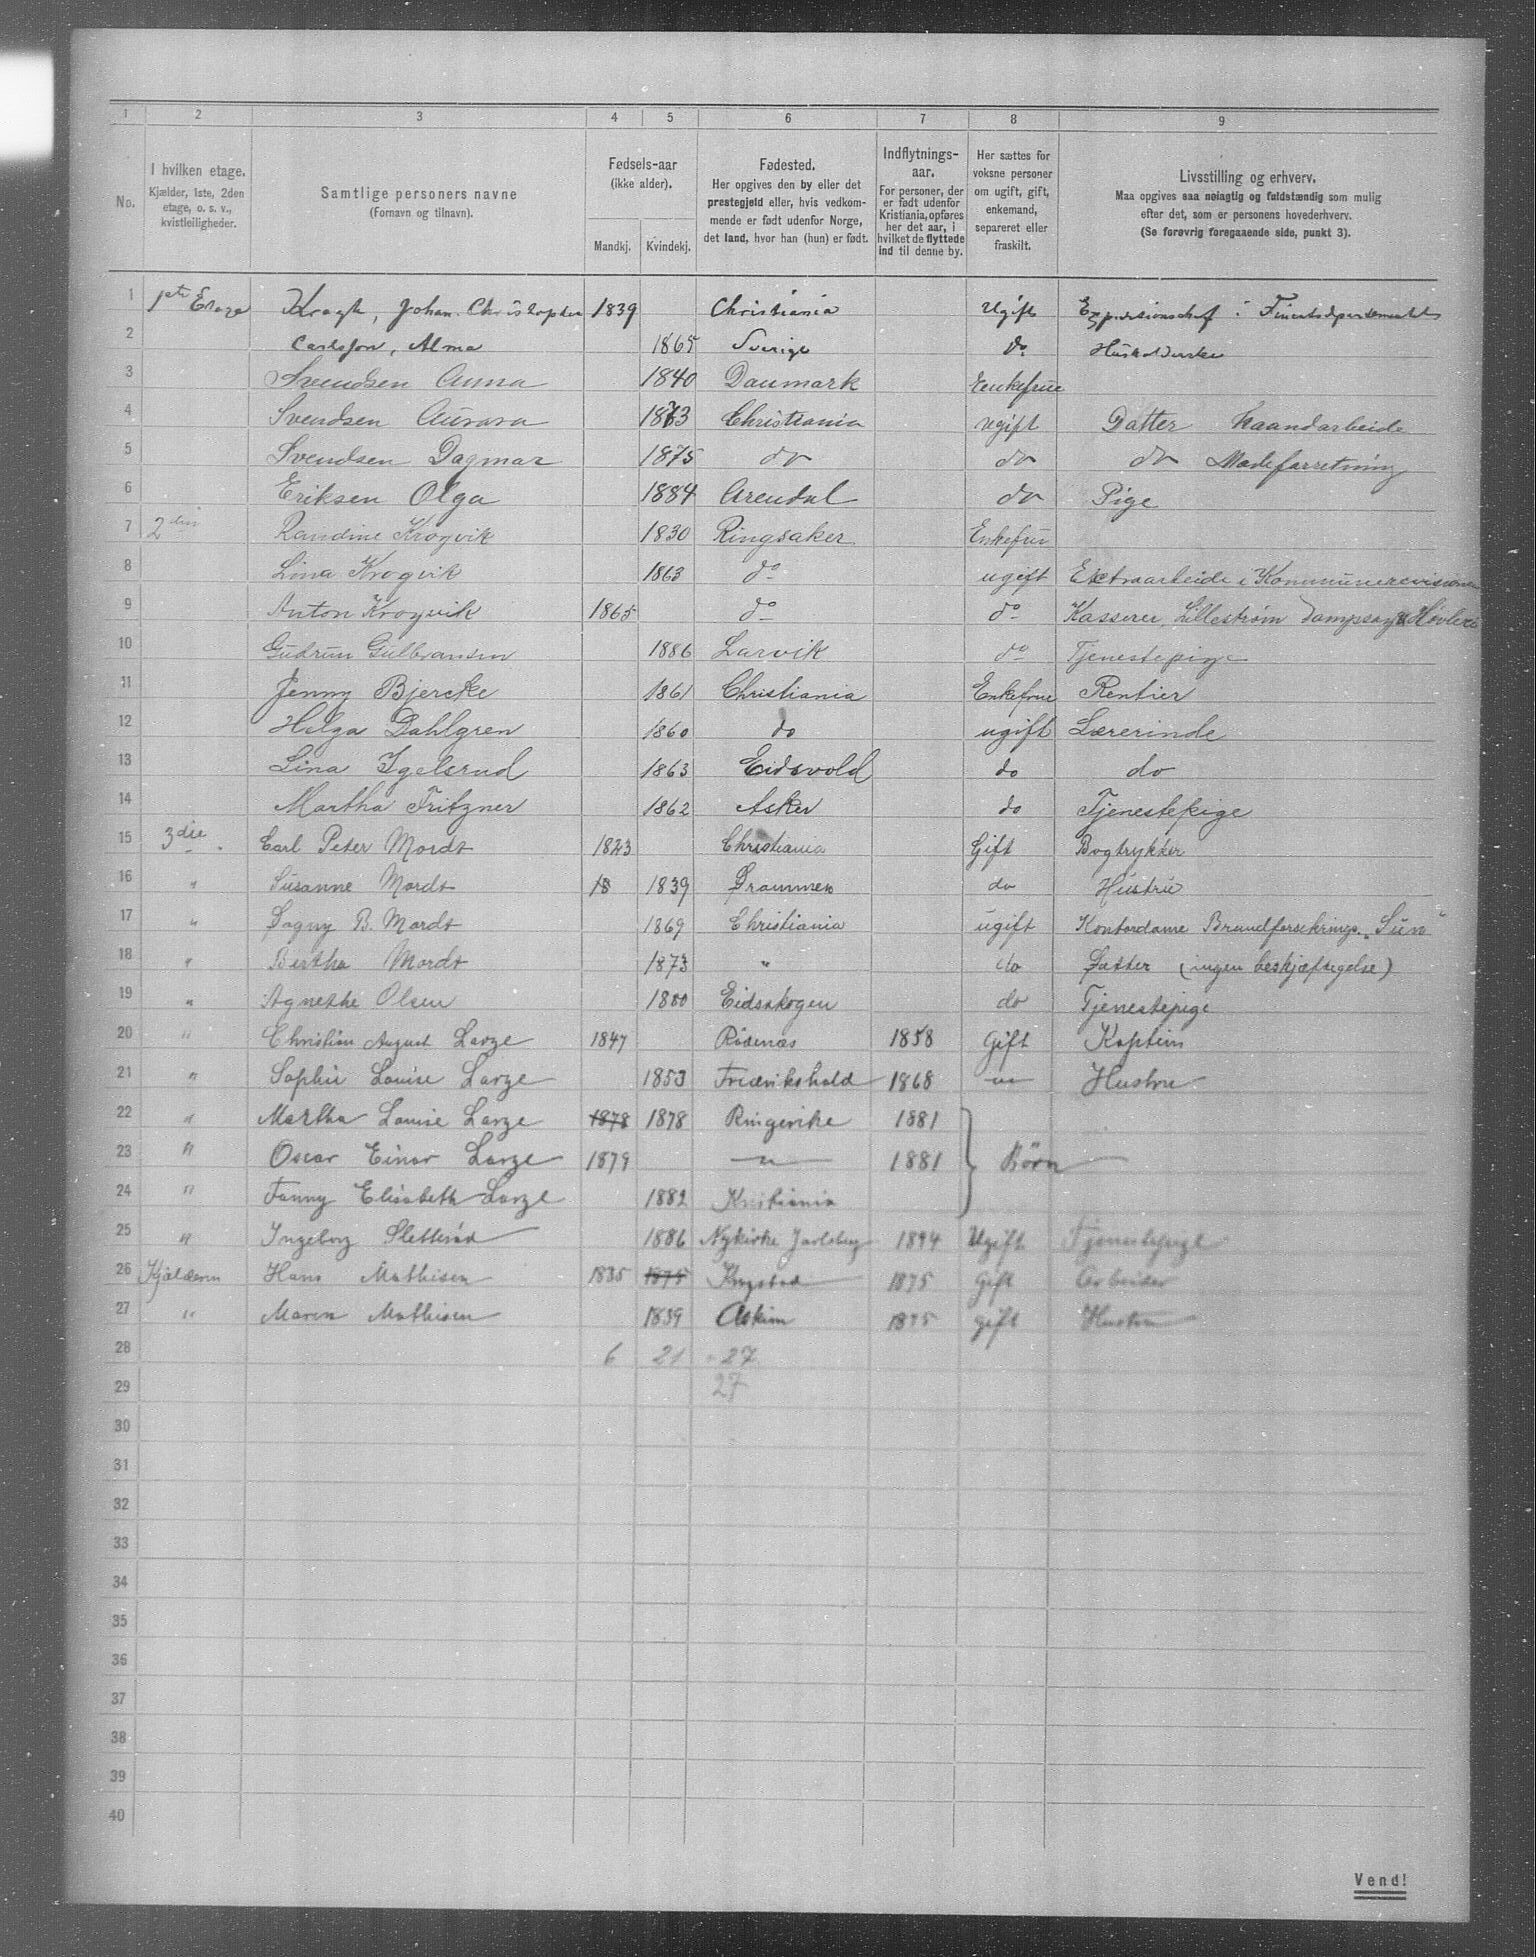 1 2 3 4 5 6 7 8 9
No.
I hvilken etage.
Kjælder, 1ste, 2den
etage, o. s. v.,
kvistleiligheder.
Samtlige personers navne
(Fornavn og tilnavn).
Fødsels-aar
(ikke alder).
Mandkj. Kvindekj.
Fødested.
Her opgives den by eller det
prestegjeld eller, hvis vedkom-
mende er født udenfor Norge,
det land, hvor han (hun) er født.
Indflytnings-
aar.
For personer, der
er født udenfor
Kristiania, opføres
her det aar, i
hvilket de flyttede
ind til denne by.
Her sættes for
voksne personer
om ugift, gift,
enkemand,
separeret eller
fraskilt.
Livsstilling og erhverv.
Maa opgives saa nøiagtig og fuldstændig som mulig
efter det, som er personens hovederhverv.
(Se forøvrig foregaaende side, punkt 3).
1 1ste Etage Kragh, Johan Christopher 1839 Christiania Ugift Expeditionschef i
2 Carlsson, Alma 1865 Sverige do Husholderske
3 Svendsen Anna 1840 Danmark Enkefrue
4 Svendsen Aurora 1873 Christiania ugift Datter Haandarbeide
5 Svendsen Dagmar 1875 do do do Modeforretning
6 Eriksen Olga 1884 Arendal do Pige
7 2den Randine Krogvik 1830 Ringsaker Enkefru
8 Lina Krogvik 1863 do ugift Extraarbeide i Kommunerevisionen
9 Anton Krogvik 1865 do do Kasserer, Lillestrøm Dampsag & Høvleri
10 Gudrun Gulbransen 1886 Larvik do Tjenestepige
11 Jenny Bjercke 1861 Christiania Enkefrue Rentier
12 Helga Dahlgren 1860 do ugift Lærerinde
13 Lina Igelsrud 1863 Eidsvold do do
14 Martha Fritzner 1862 Asker do Tjenestepige
15 3die Carl Peter Mordt 1823 Christiania Gift Bogtrykker
16 " Susanne Mordt 18 1839 Drammen do Hustru
17 " Dagny B. Mordt 1869 Christiania ugift Kontordame Brandforsikrings. "Sun"
18 " Bertha Mordt 1873 " do Datter (ingen beskjæftigelse)
19 " Agnethe Olsen 1880 Eidsskogen do Tjenestepige
20 " Christian August Lavze 1847 Rødenæs 1858 Gift Kaptein
21 " Sophie Louise Lavze 1853 Fredrikshald 1868 " Hustru
22 " Martha Louise Lavze 1878 1878 Ringerike 1881
23 " Oscar Einar Lavze 1879 " 1881 Børn
24 " Fanny Elisabeth Lavze 1882 Kristiania
25 " Ingeborg Sletterød 1886 Nykirke Jarlsberg 1894 Ugift Tjenestepige
26 Kjælderen Hans Mathisen 1835 1875 1875 Gift Arbeider
27 " Maren Mathisen 1839 Askim 1875 gift Hustru
28 6 21 - 27
29 27
30
31
32
33
34
35
36
37
38
39
40
Vend!